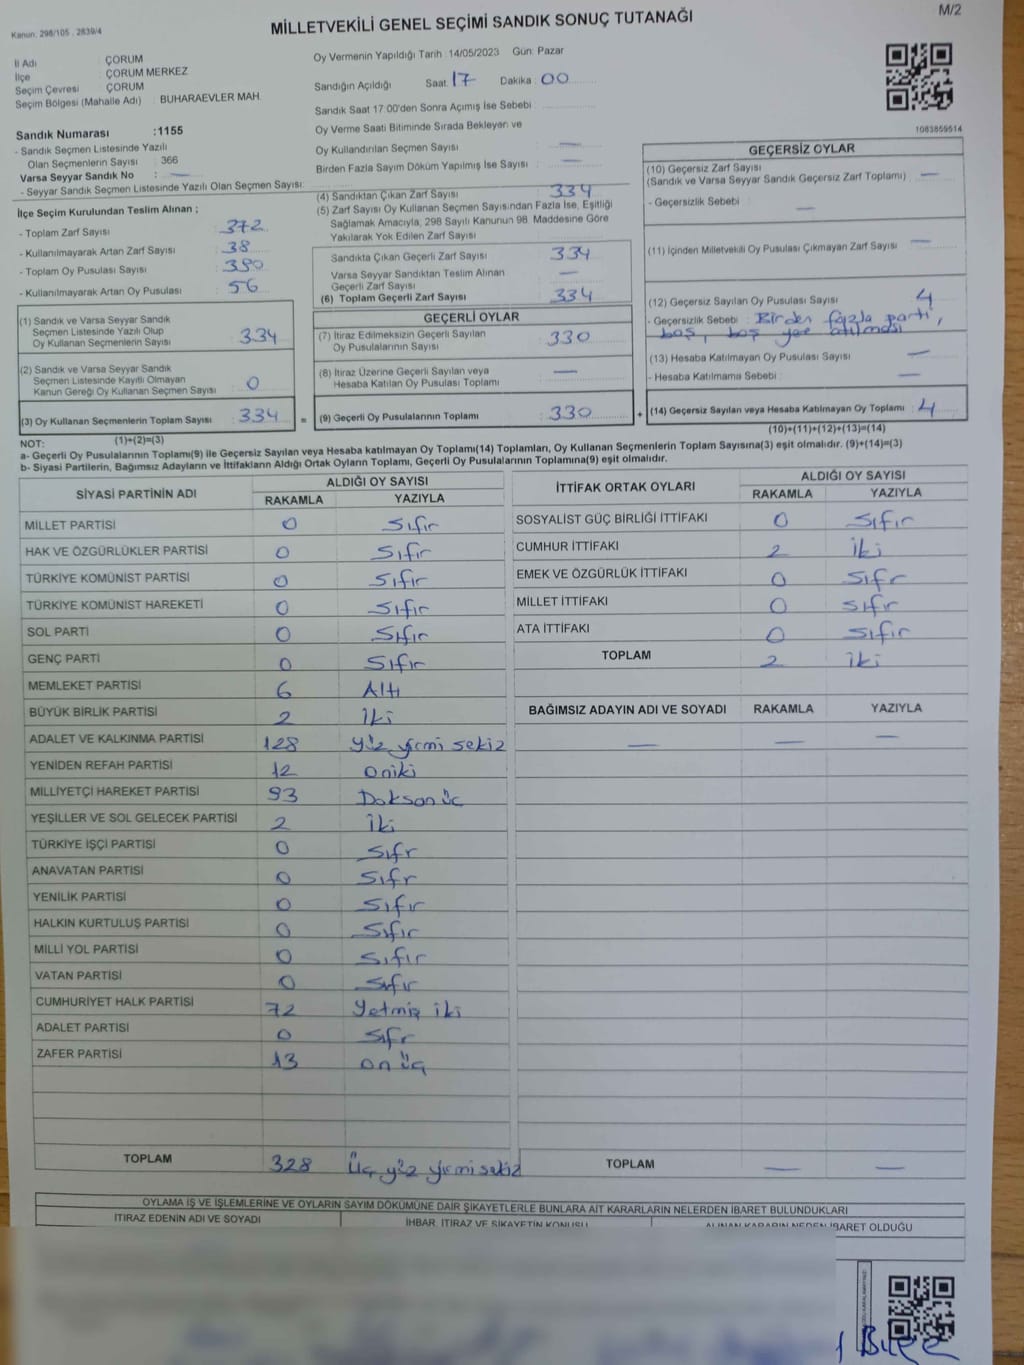 Kanun: 298/105 , 2839/4
MİLLETVEKİLİ GENEL SEÇİMİ SANDIK SONUÇ TUTANAĞI
M/2
İl Adı : ÇORUM
İlçe : ÇORUM MERKEZ
Seçim Çevresi : ÇORUM
Seçim Bölgesi (Mahalle Adı) : BUHARAEVLER MAH.
Sandık Numarası :1155
- Sandık Seçmen Listesinde Yazılı
Olan Seçmenlerin Sayısı : 366
Varsa Seyyar Sandık No : —
- Seyyar Sandık Seçmen Listesinde Yazılı Olan Seçmen Sayısı:
İlçe Seçim Kurulundan Teslim Alınan ;
- Toplam Zarf Sayısı : 372
- Kullanılmayarak Artan Zarf Sayısı : 38
- Toplam Oy Pusulası Sayısı : 390
- Kullanılmayarak Artan Oy Pusulası : 56
(1) Sandık ve Varsa Seyyar Sandık
Seçmen Listesinde Yazılı Olup
Oy Kullanan Seçmenlerin Sayısı : 334
(2) Sandık ve Varsa Seyyar Sandık
Seçmen Listesinde Kayıtlı Olmayan
Kanun Gereği Oy Kullanan Seçmen Sayısı : 0
(3) Oy Kullanan Seçmenlerin Toplam Sayısı : 334 =
(1)+(2)=(3)
Oy Vermenin Yapıldığı Tarih :14/05/2023 Gün: Pazar
Sandığın Açıldığı Saat: 17 Dakika : 00
Sandık Saat 17:00'den Sonra Açımış İse Sebebi :
Oy Verme Saati Bitiminde Sırada Bekleyen ve
Oy Kullandırılan Seçmen Sayısı : —
Birden Fazla Sayım Döküm Yapılmış İse Sayısı : —
(4) Sandıktan Çıkan Zarf Sayısı : 334
(5) Zarf Sayısı Oy Kullanan Seçmen Sayısından Fazla İse, Eşitliği
Sağlamak Amacıyla, 298 Sayılı Kanunun 98. Maddesine Göre
Yakılarak Yok Edilen Zarf Sayısı :
Sandıkta Çıkan Geçerli Zarf Sayısı : 334
Varsa Seyyar Sandıktan Teslim Alınan
Geçerli Zarf Sayısı : —
(6) Toplam Geçerli Zarf Sayısı : 334
GEÇERLİ OYLAR
(7) İtiraz Edilmeksizin Geçerli Sayılan
Oy Pusulalarının Sayısı : 330
(8) İtiraz Üzerine Geçerli Sayılan veya
Hesaba Katılan Oy Pusulası Toplamı : —
(9) Geçerli Oy Pusulalarının Toplamı : 330 +
1083859514
GEÇERSİZ OYLAR
(10) Geçersiz Zarf Sayısı
(Sandık ve Varsa Seyyar Sandık Geçersiz Zarf Toplamı) : —
- Geçersizlik Sebebi : —
(11) İçinden Milletvekili Oy Pusulası Çıkmayan Zarf Sayısı : —
(12) Geçersiz Sayılan Oy Pusulası Sayısı : 4
- Geçersizlik Sebebi : Birden fazla parti,
boş, boş yere atılması
(13) Hesaba Katılmayan Oy Pusulası Sayısı : —
- Hesaba Katılmama Sebebi : —
(14) Geçersiz Sayılan veya Hesaba Katılmayan Oy Toplamı : 4
(10)+(11)+(12)+(13)=(14)
NOT:
a- Geçerli Oy Pusulaları Toplamı(9) ile Geçersiz Sayılan veya Hesaba katılmayan Oy Toplamı(14) Toplamları, Oy Kullanan Seçmenlerin Toplam Sayısına(3) eşit olmalıdır. (9)+(14)=(3)
b- Siyasi Partilerin, Bağımsız Adayların ve İttifakların Aldığı Ortak Oyların Toplamı, Geçerli Oy Pusulalarının Toplamına(9) eşit olmalıdır.
SİYASİ PARTİNİN ADI ALDIĞI OY SAYISI
RAKAMLA YAZIYLA
MİLLET PARTİSİ 0 Sıfır
HAK VE ÖZGÜRLÜKLER PARTİSİ 0 Sıfır
TÜRKİYE KOMÜNİST PARTİSİ 0 Sıfır
TÜRKİYE KOMÜNİST HAREKETİ 0 Sıfır
SOL PARTİ 0 Sıfır
GENÇ PARTİ 0 Sıfır
MEMLEKET PARTİSİ 6 Altı
BÜYÜK BİRLİK PARTİSİ 2 İki
ADALET VE KALKINMA PARTİSİ 128 Yüz yirmi sekiz
YENİDEN REFAH PARTİSİ 12 Oniki
MİLLİYETÇİ HAREKET PARTİSİ 93 Doksan üç
YEŞİLLER VE SOL GELECEK PARTİSİ 2 İki
TÜRKİYE İŞÇİ PARTİSİ 0 Sıfır
ANAVATAN PARTİSİ 0 Sıfır
YENİLİK PARTİSİ 0 Sıfır
HALKIN KURTULUŞ PARTİSİ 0 Sıfır
MİLLİ YOL PARTİSİ 0 Sıfır
VATAN PARTİSİ 0 Sıfır
CUMHURİYET HALK PARTİSİ 72 Yetmiş iki
ADALET PARTİSİ 0 Sıfır
ZAFER PARTİSİ 13 on üç
TOPLAM 328 Üç yüz yirmisekiz
İTTİFAK ORTAK OYLARI ALDIĞI OY SAYISI
RAKAMLA YAZIYLA
SOSYALİST GÜÇ BİRLİĞİ İTTİFAKI 0 Sıfır
CUMHUR İTTİFAKI 2 İki
EMEK VE ÖZGÜRLÜK İTTİFAKI 0 Sıfır
MİLLET İTTİFAKI 0 Sıfır
ATA İTTİFAKI 0 Sıfır
TOPLAM 2 İki
BAĞIMSIZ ADAYIN ADI VE SOYADI RAKAMLA YAZIYLA
— — —
TOPLAM — —
OYLAMA İŞ VE İŞLEMLERİNE VE OYLARIN SAYIM DÖKÜMÜNE DAİR ŞİKAYETLERLE BUNLARA AİT KARARLARIN NELERDEN İBARET BULUNDUKLARI
İTİRAZ EDENİN ADI VE SOYADI İHBAR, İTİRAZ VE ŞİKAYETİN KONUSU ALINAN KARARIN NEDEN İBARET OLDUĞU